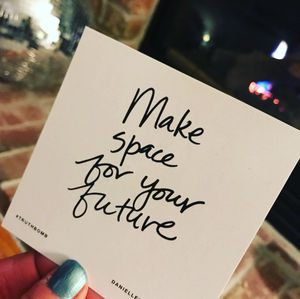 Make
space
for your
future
#TRUTHBOMB
DANIELLE